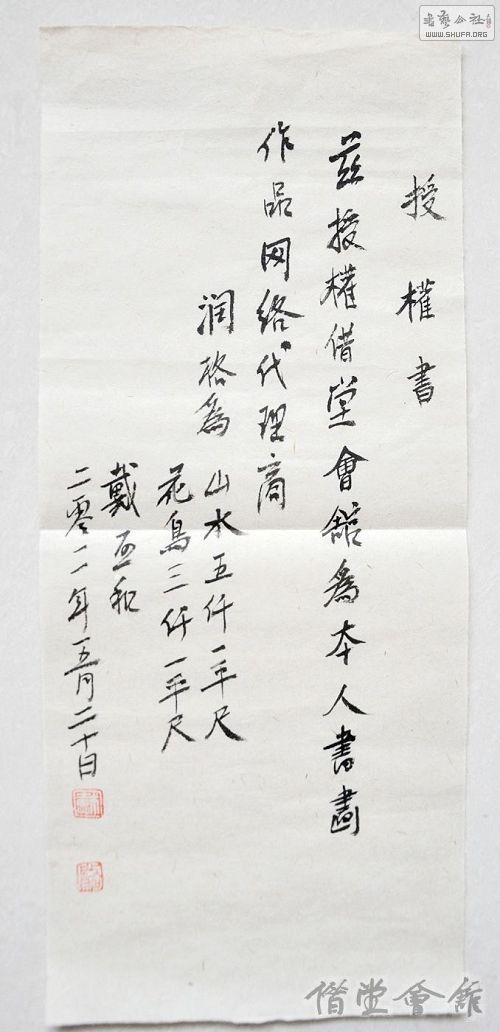 書藝公社
WWW.SHUFA.ORG
授權書
茲授權借堂會舘為本人書畫
作品网络代理商
润格為 山水五仟一平尺
花鳥三仟一平尺
戴和
二零一一年五月二十日
借堂會舘